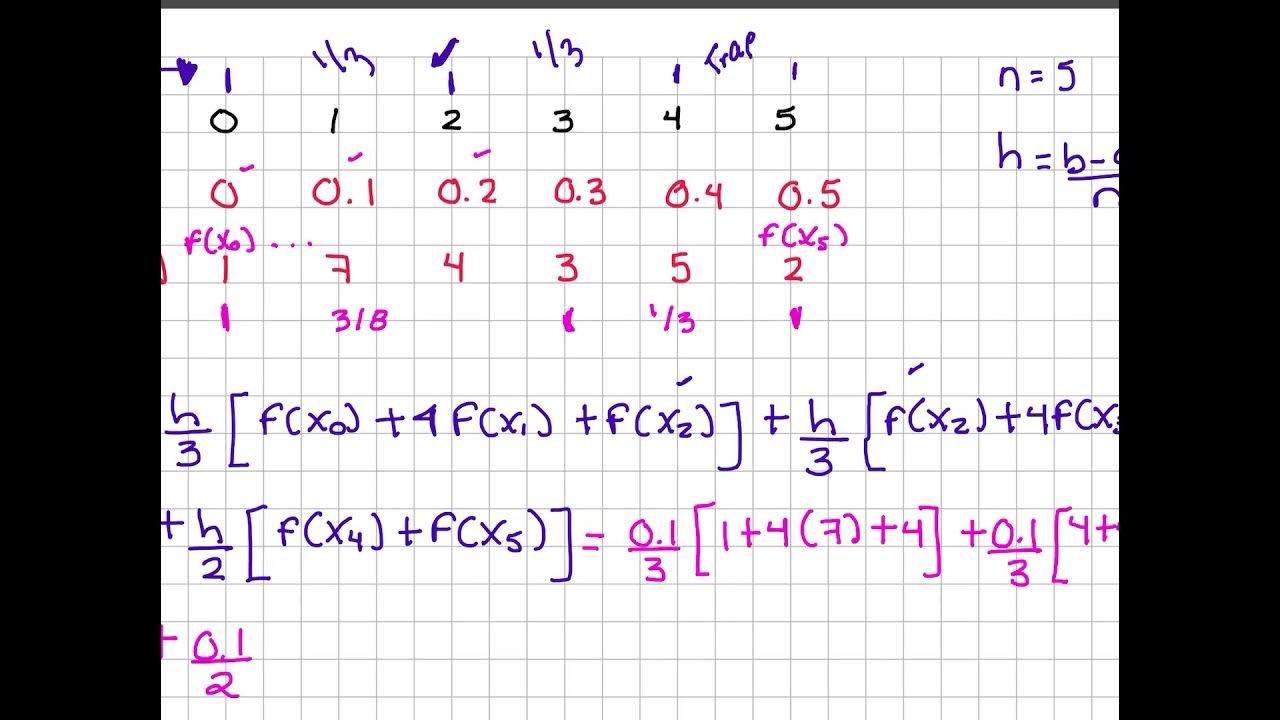 1/3 ✓ 1/3 Trap
n = 5
0 1 2 3 4 5
h = b-
n
0 0.1 0.2 0.3 0.4 0.5
f(x₀) ... f(x₅)
1 7 4 3 5 2
3/8 1/3
h/3 [f(x₀) + 4f(x₁) + f(x₂)] + h/3 [f(x₂) + 4f(x₃
+ h/2 [f(x₄) + f(x₅)] = 0.1/3 [1+4(7)+4] + 0.1/3 [4+
+ 0.1/2